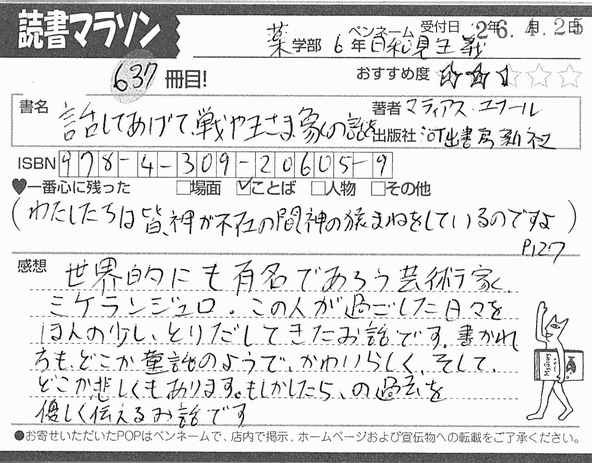 読書マラソン
受付日 26.4.25日
薬学部 6年 ペンネーム 日和見主義
637冊目!
おすすめ度 ☆☆☆☆☆
書名 話してあげて、戦や王さま、象の話を
著者 マティアス・エナール
出版社 河出書房新社
ISBN 978-4-309-20605-9
♥一番心に残った □場面 ☑ことば □人物 □その他
(わたしたちは皆、神が不在の間神の猿まねをしているのですよ)
P127
感想 世界的にも有名であろう芸術家、
ミケランジェロ。この人が過ごした日々を
ほんの少し、とりだしてきたお話です。書かれ
方も、どこか童話のようで、かわいらしく、そして、
どこか悲しくもあります。もしかしたら、の過去を
優しく伝えるお話です
●お寄せいただいたPOPはペンネームで、店内で掲示、ホームページおよび宣伝物への転載をご了承ください。